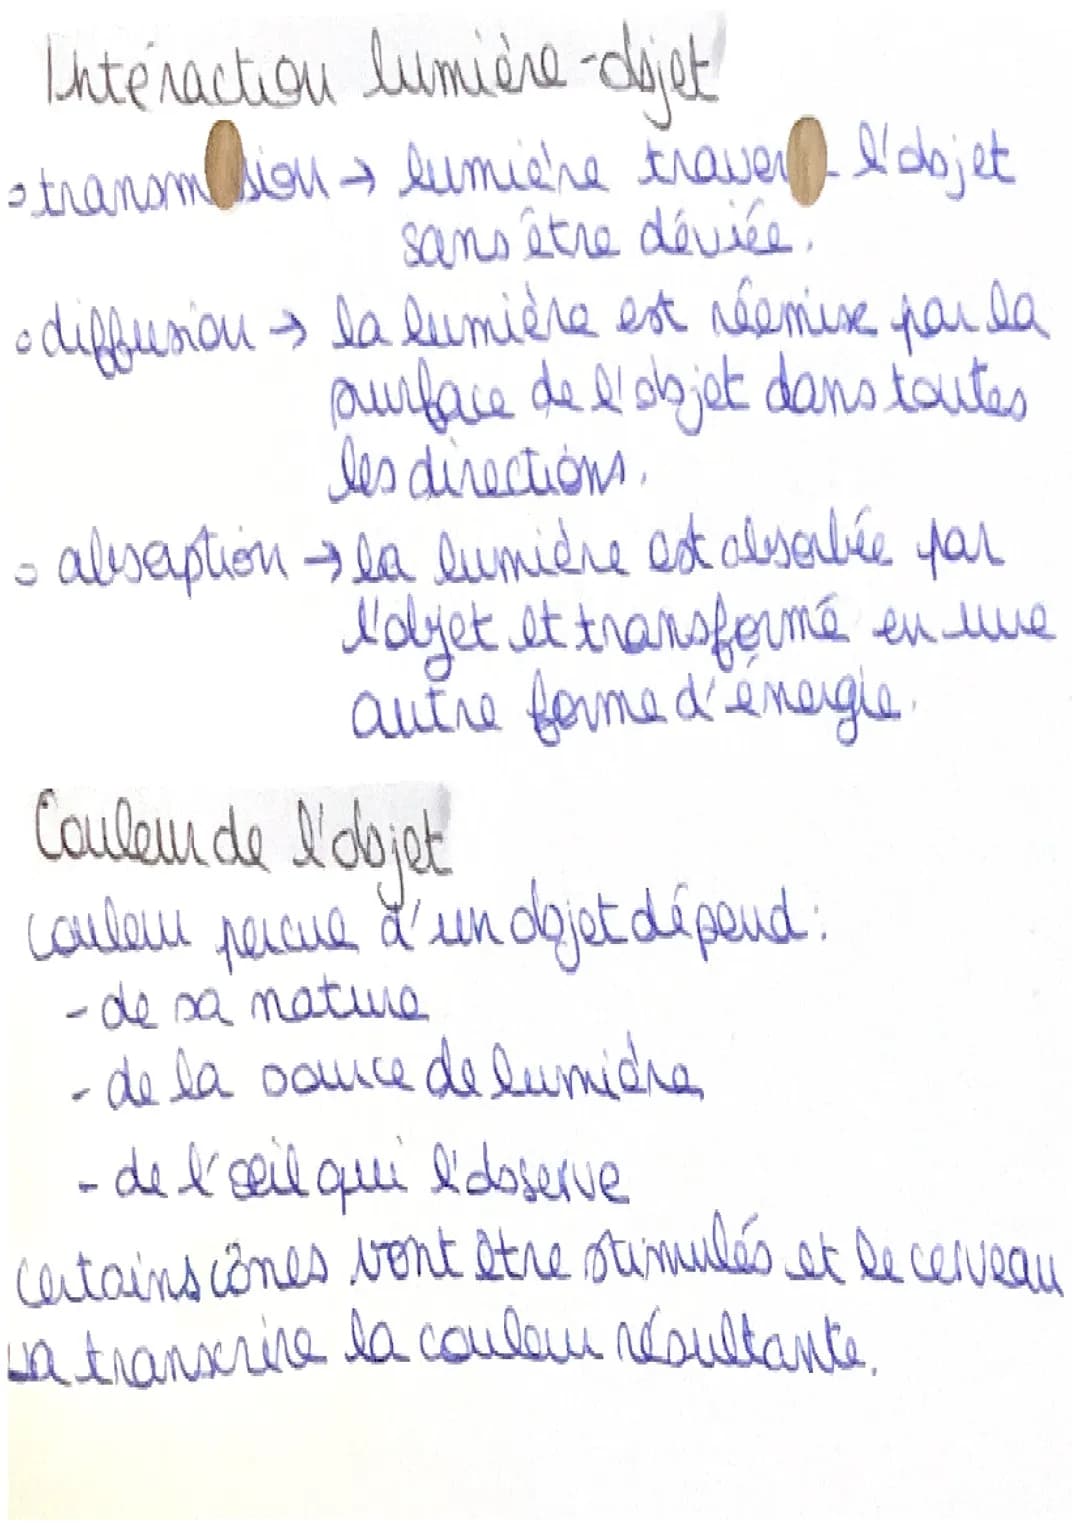 Intéraction lumière-objet
transm sion → lumière traver l'objet
sans être déviée.
diffusion → la lumière est réemise par la
surface de l'objet dans toutes
les directions.
absorption → la lumière est absorbée par
l'objet et transformé en une
autre forme d'énergie.
Couleur de l'objet
couleur percue d'un objet dépend :
- de sa nature
- de la source de lumière
- de l'œil qui l'observe
certains cônes vont être stimulés et le cerveau
va transcrire la couleur résultante.